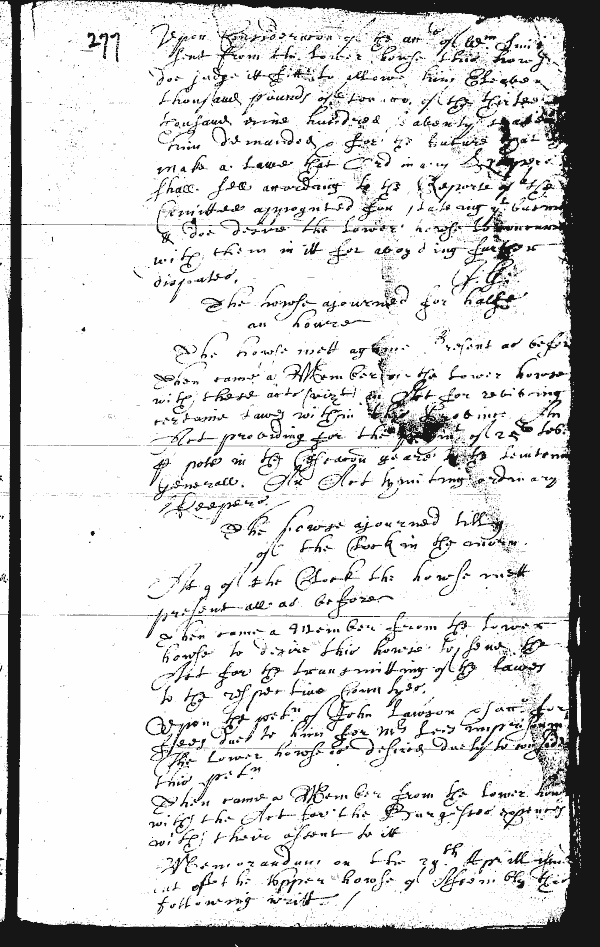 277
Upon Consideracon of the acct of Wm
sent from the Lower howse this howse
doe judge it fitt to allowe him Eleaven
thousand pounds of tob of the thirteen
thousand nine hundred & seventy
him demanded & for the future that
make a Lawe that Ordinary Keepers
shall sell according to the Reporte of the
Comittee appoynted for stateing yt busines
& doe desire the lower howse to concurre
with them in itt for avoyding further
disputes.
The howse ajourned for halfe
an howre
The howse mett againe Present as before
Then came a Member from the Lower howse
with these acts (vizt) an Act for reviving
certaine lawes within this Province An
Act providing for the of 25 tob
p pole in the Eleaven yeare to the Leiutent
Generall. An Act lymiting ordinary
Keepers
The howse ajourned till 9
of the Clock in the morn.
Att 9 of the Clock the howse mett
present all as before
Then came a Member from the Lower
howse to desire this howse to send the
Act for the transmitting of the lawes
to the respective Countyes.
Upon the petn of John Lawson for
Fees due to him for Mrs Lees imprisonm
The Lower howse is desired to consider
this petn
Then came a Member from the Lower howse
with the Act for the Burgesses expences
with their assent to it
Memorandum on the 29th Aprill
out of the Upper howse of Assembly this
following writt /